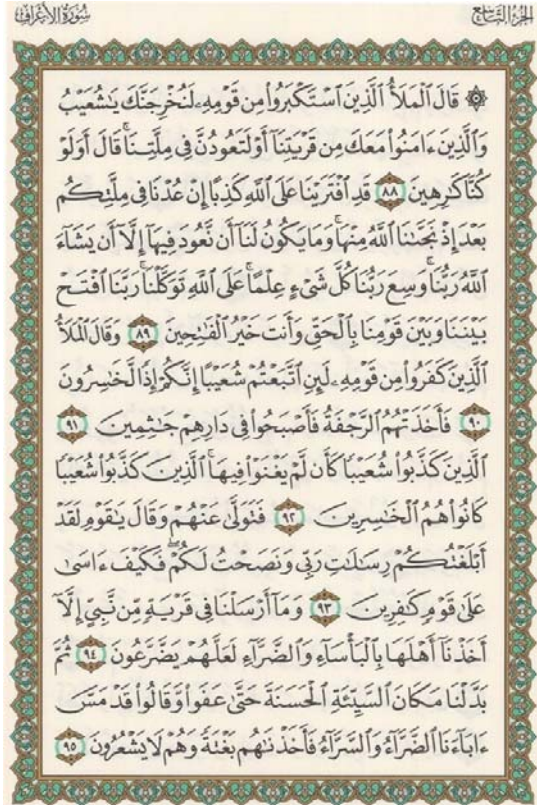 الجزء التاسع
سورة الأعراف
۞ قَالَ ٱلْمَلَأُ ٱلَّذِينَ ٱسْتَكْبَرُوا۟ مِن قَوْمِهِۦ لَنُخْرِجَنَّكَ يَـٰشُعَيْبُ
وَٱلَّذِينَ ءَامَنُوا۟ مَعَكَ مِن قَرْيَتِنَآ أَوْ لَتَعُودُنَّ فِى مِلَّتِنَا ۚ قَالَ أَوَلَوْ
كُنَّا كَـٰرِهِينَ ٨٨ قَدِ ٱفْتَرَيْنَا عَلَى ٱللَّهِ كَذِبًا إِنْ عُدْنَا فِى مِلَّتِكُم
بَعْدَ إِذْ نَجَّىٰنَا ٱللَّهُ مِنْهَا ۚ وَمَا يَكُونُ لَنَآ أَن نَّعُودَ فِيهَآ إِلَّآ أَن يَشَآءَ
ٱللَّهُ رَبُّنَا ۚ وَسِعَ رَبُّنَا كُلَّ شَىْءٍ عِلْمًا ۚ عَلَى ٱللَّهِ تَوَكَّلْنَا ۚ رَبَّنَا ٱفْتَحْ
بَيْنَنَا وَبَيْنَ قَوْمِنَا بِٱلْحَقِّ وَأَنتَ خَيْرُ ٱلْفَـٰتِحِينَ ٨٩ وَقَالَ ٱلْمَلَأُ
ٱلَّذِينَ كَفَرُوا۟ مِن قَوْمِهِۦ لَئِنِ ٱتَّبَعْتُمْ شُعَيْبًا إِنَّكُمْ إِذًا لَّخَـٰسِرُونَ
٩٠ فَأَخَذَتْهُمُ ٱلرَّجْفَةُ فَأَصْبَحُوا۟ فِى دَارِهِمْ جَـٰثِمِينَ ٩١
ٱلَّذِينَ كَذَّبُوا۟ شُعَيْبًا كَأَن لَّمْ يَغْنَوْا۟ فِيهَا ۚ ٱلَّذِينَ كَذَّبُوا۟ شُعَيْبًا
كَانُوا۟ هُمُ ٱلْخَـٰسِرِينَ ٩٢ فَتَوَلَّىٰ عَنْهُمْ وَقَالَ يَـٰقَوْمِ لَقَدْ
أَبْلَغْتُكُمْ رِسَـٰلَـٰتِ رَبِّى وَنَصَحْتُ لَكُمْ ۖ فَكَيْفَ ءَاسَىٰ
عَلَىٰ قَوْمٍ كَـٰفِرِينَ ٩٣ وَمَآ أَرْسَلْنَا فِى قَرْيَةٍ مِّن نَّبِىٍّ إِلَّآ
أَخَذْنَآ أَهْلَهَا بِٱلْبَأْسَآءِ وَٱلضَّرَّآءِ لَعَلَّهُمْ يَضَّرَّعُونَ ٩٤ ثُمَّ
بَدَّلْنَا مَكَانَ ٱلسَّيِّئَةِ ٱلْحَسَنَةَ حَتَّىٰ عَفَوا۟ وَّقَالُوا۟ قَدْ مَسَّ
ءَابَآءَنَا ٱلضَّرَّآءُ وَٱلسَّرَّآءُ فَأَخَذْنَـٰهُم بَغْتَةً وَهُمْ لَا يَشْعُرُونَ ٩٥